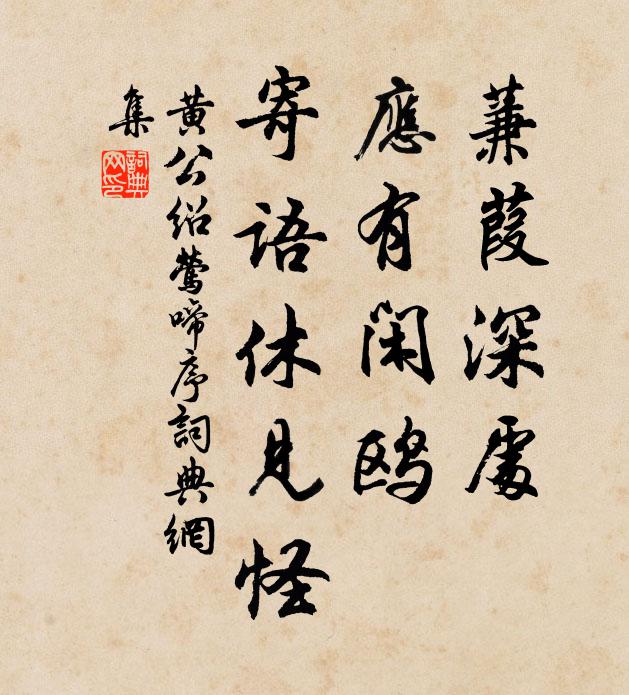 蒹葭深處
應有閑鷗
寄語休見怪
黄公紹鶯啼序詞典網
集
詞典
网印